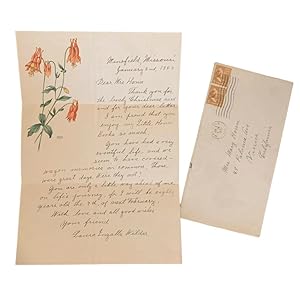 Mansfield, Missouri
January 2nd, 19
Dear Mrs
Thank you for
the lovely Christmas
and for your dear letter
I am proud that you
enjoy my Little House
Books so much.
You have had a very
wonderful life, and we
seem to have covered
wagon memories in common. Those
were great days were they not?
You are only a little way ahead of me
on life's journey, for I will be eighty
years old the 7th of next February.
With love and all good wishes
Your friend
Laura Ingalls Wilder
Mrs. Mary
California